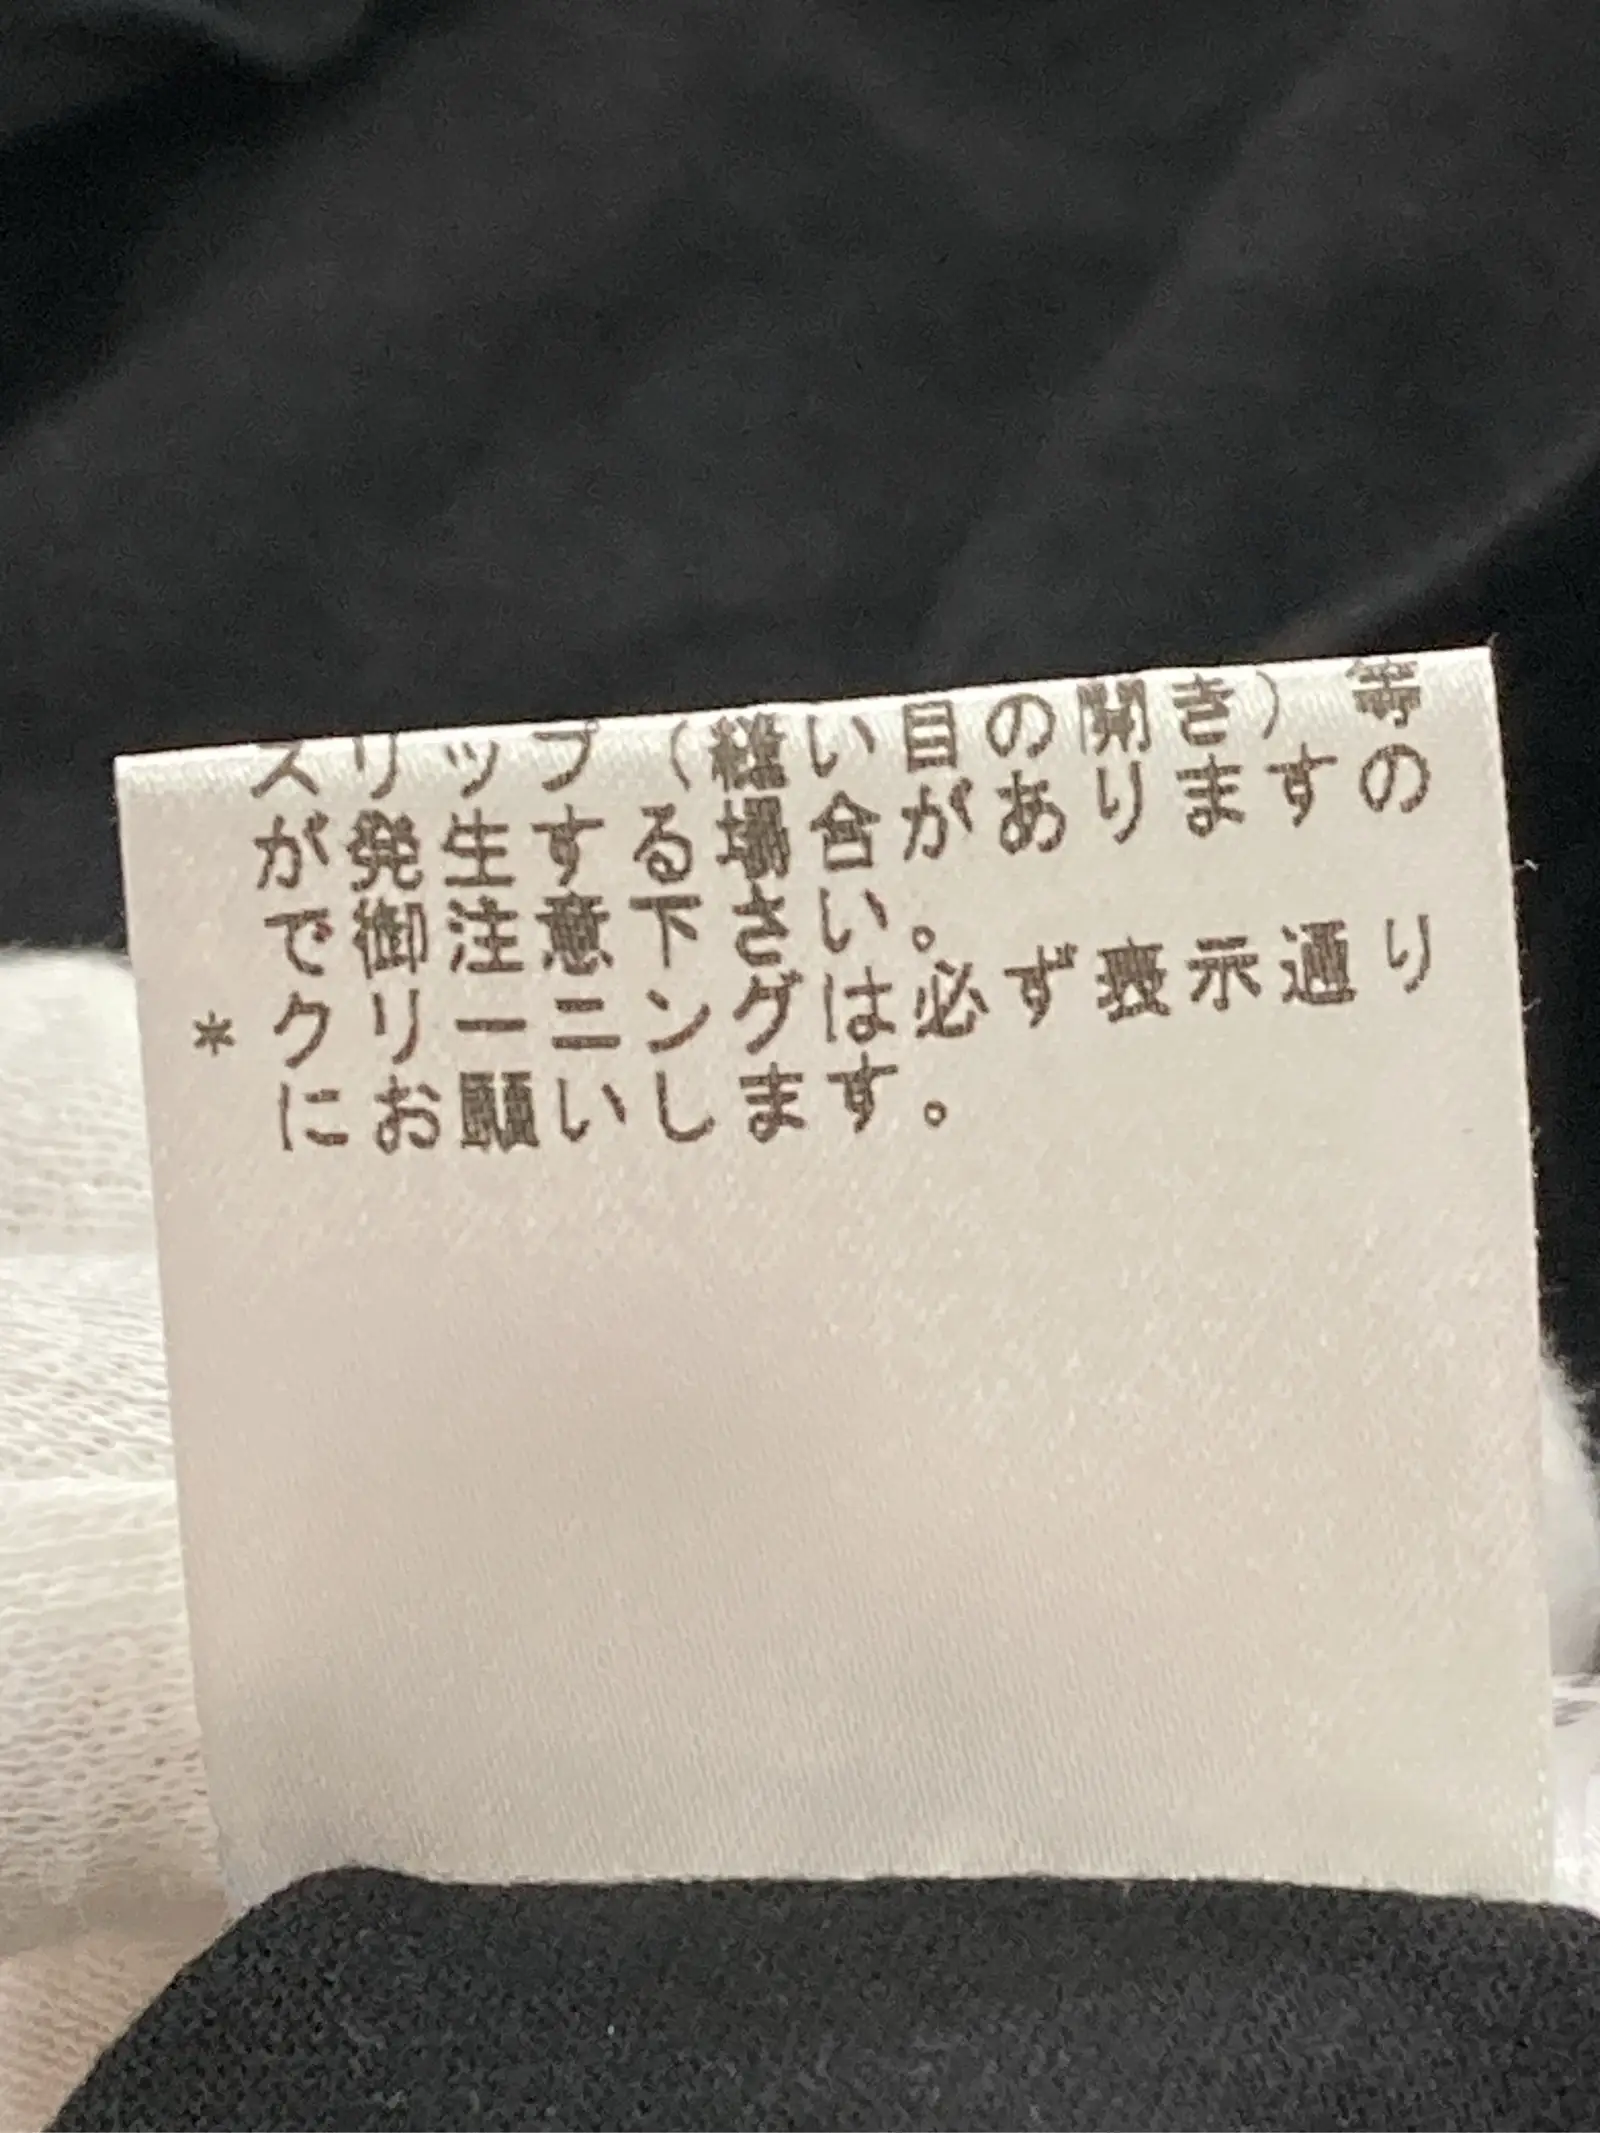 スリップ（縫い目の開き）等
が発生する場合がありますの
で御注意下さい。
＊クリーニングは必ず表示通り
にお願いします。